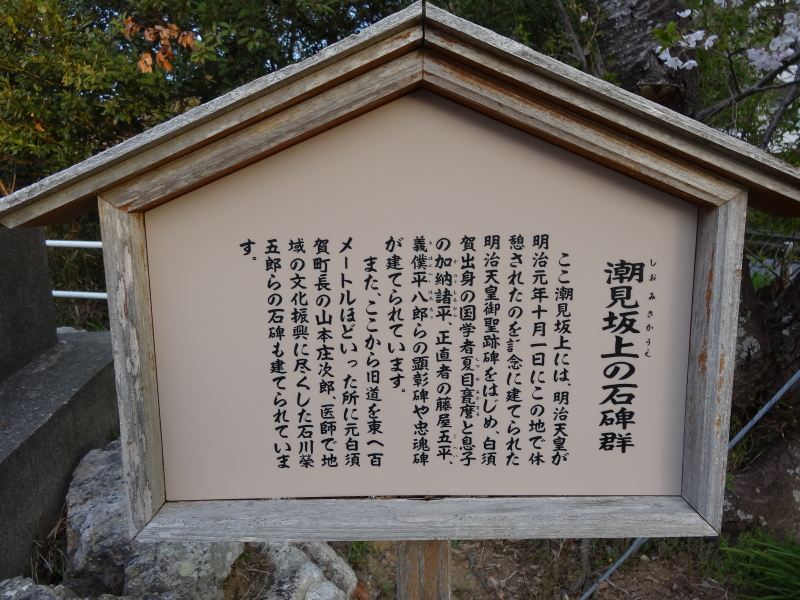 潮見坂上の石碑群
しおみさかうえ
ここ潮見坂上には、明治天皇が
明治元年十月一日にこの地で休
憩されたのを記念に建てられた
明治天皇御聖跡碑をはじめ、白須
賀出身の国学者夏目甕麿と息子
の加納諸平、正直者の藤屋五平、
義僕平八郎らの顕彰碑や忠魂碑
が建てられています。
また、ここから旧道を東へ百
メートルほどいった所に元白須
賀町長の山本庄次郎、医師で地
域の文化振興に尽くした石川榮
五郎らの石碑も建てられていま
す。